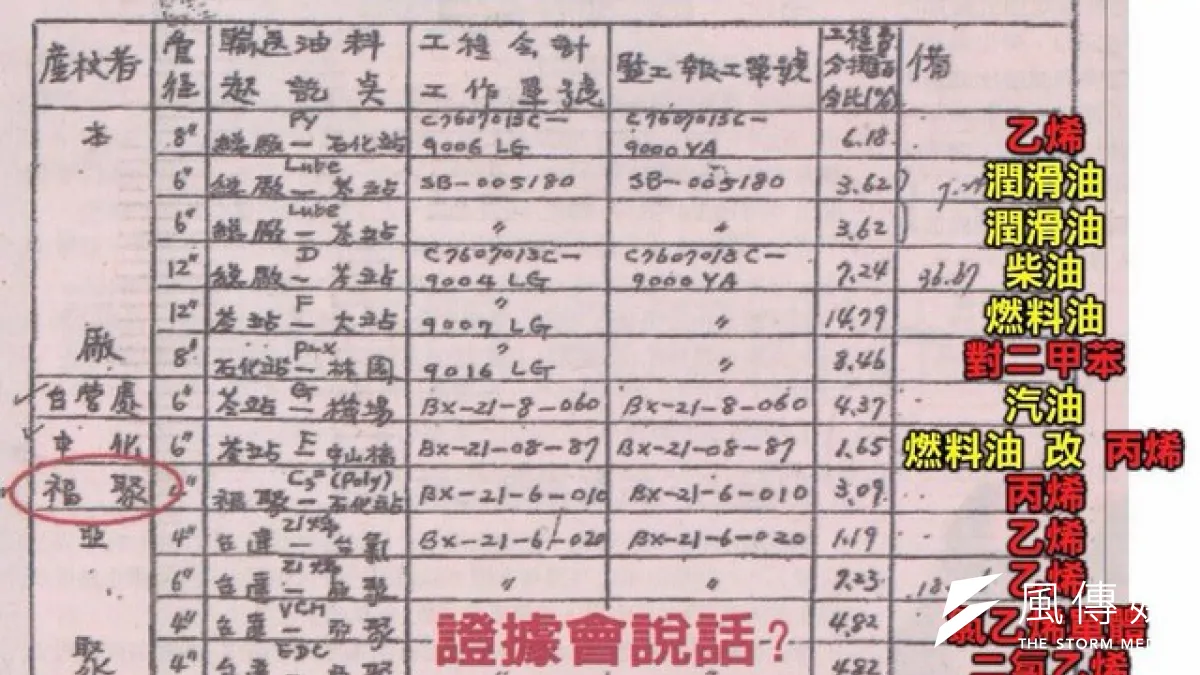 產权者 管徑 輸送油料起訖点 工程会計工作單號 監工報工單號 工程費分攤百分比(%) 備
本 8" Py 總廠－石化站 C7607013C－9006 LG C7607013C－9000 YA 6.18 乙烯
6" Lube 總廠－苓站 SB-005180 SB-005180 3.62 潤滑油
6" Lube 總廠－苓站 〃 〃 3.62 潤滑油
12" D 總廠－苓站 C7607013C－9004 LG C7607013C－9000 YA 7.24 36.67 柴油
12" F 苓站－大站 〃 9007 LG 〃 14.79 燃料油
廠 8" 石化站－林園 〃 9016 LG 〃 8.46 對二甲苯
台營處 6" G 苓站－機場 BX-21-8-060 BX-21-8-060 4.37 汽油
中化 6" E 苓站－中山橋 BX-21-08-87 BX-21-08-87 1.65 燃料油 改 丙烯
福聚 4" C3=(Poly) 福聚－石化站 BX-21-6-010 BX-21-6-010 3.09 丙烯
亞 4" 乙烯 台達－台氯 BX-21-6-020 BX-21-6-020 1.19 乙烯
6" 乙烯 台達－亞聚 〃 〃 7.23 乙烯
4" VCM 台達－ 4.82
聚 4" EDC 台達 4.82 二氯乙烯
證據會說話？
風傳媒
THE STORM MED